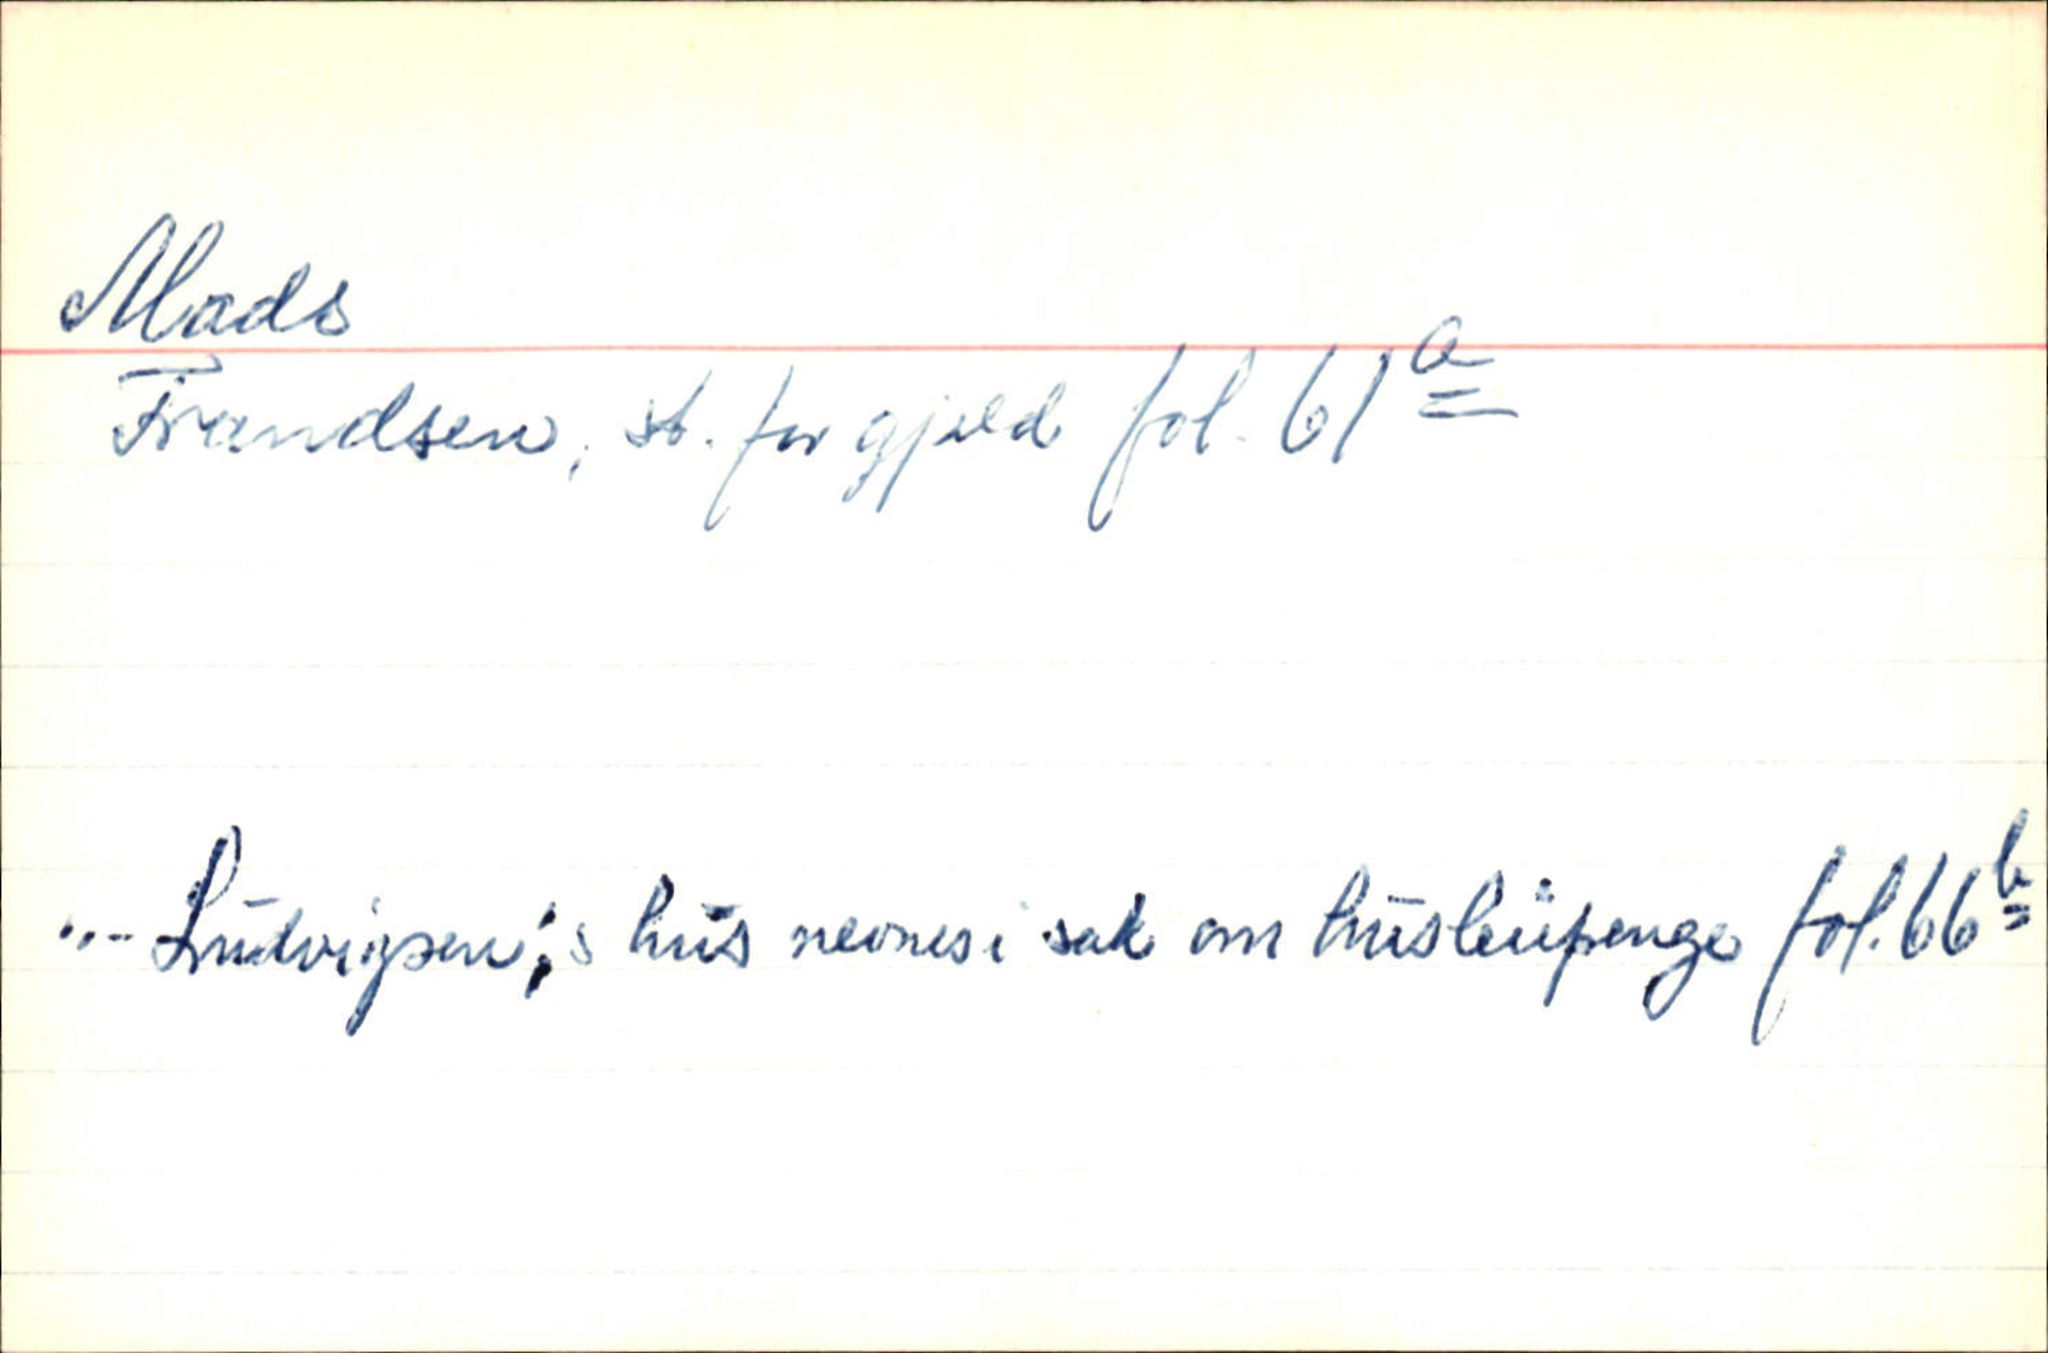 Mads
Frandsen, st. for gjeld fol. 61a
"- Ludvigsen,'s hus nevnes i sak om husleiepenge fol. 66b